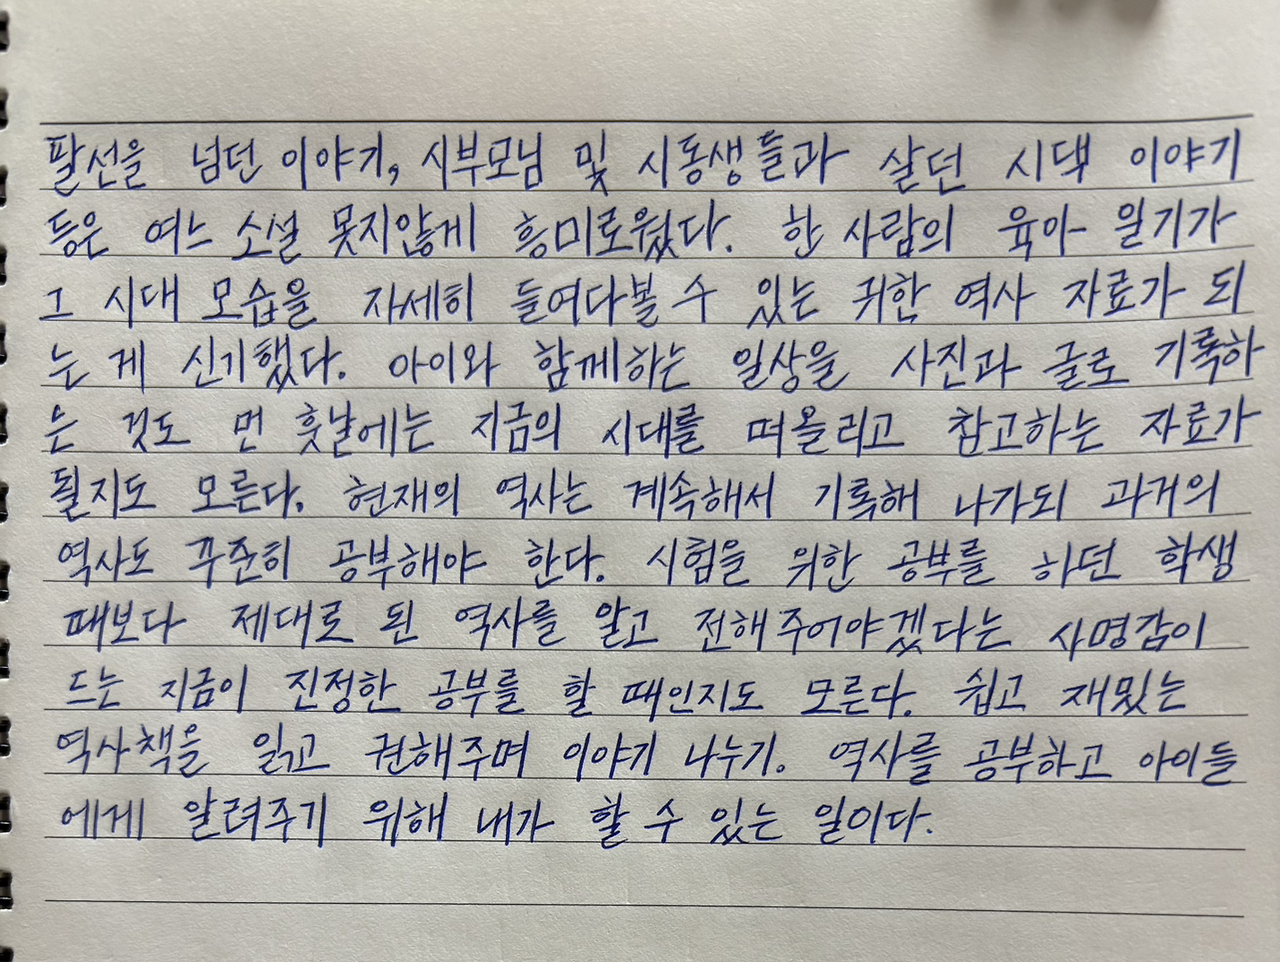 팔선을 넘던 이야기, 시부모님 및 시동생들과 살던 시댁 이야기
등은 여느 소설 못지않게 흥미로웠다. 한 사람의 육아 일기가
그 시대 모습을 자세히 들여다볼 수 있는 귀한 역사 자료가 되
는 게 신기했다. 아이와 함께하는 일상을 사진과 글로 기록하
는 것도 먼 훗날에는 지금의 시대를 떠올리고 참고하는 자료가
될지도 모른다. 현재의 역사는 계속해서 기록해 나가되 과거의
역사도 꾸준히 공부해야 한다. 시험을 위한 공부를 하던 학생
때보다 제대로 된 역사를 알고 전해주어야겠다는 사명감이
드는 지금이 진정한 공부를 할 때인지도 모른다. 쉽고 재밌는
역사책을 읽고 권해주며 이야기 나누기. 역사를 공부하고 아이들
에게 알려주기 위해 내가 할 수 있는 일이다.